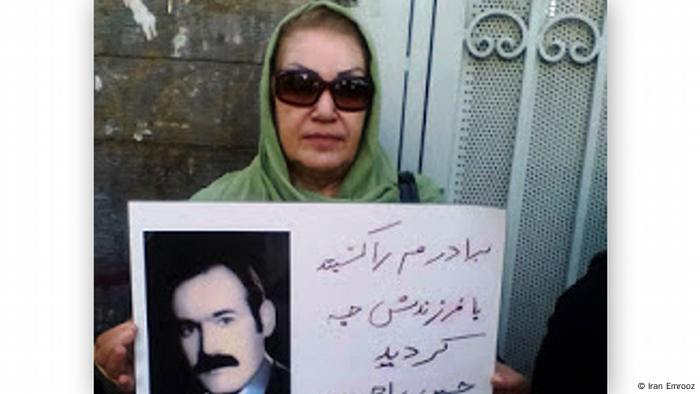 برادرم را کشتید
با فرزندش چه
کردید
© Iran Emrooz